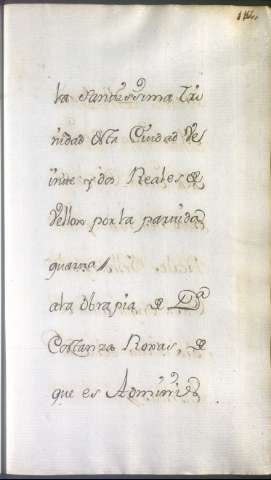 la Santissima Tri
nidad desta Ciudad Ve
inte y dos Reales de
Vellon por la partida
quarta //
ala Obra pia de Da
Costanza Romas, de
que es Adminis